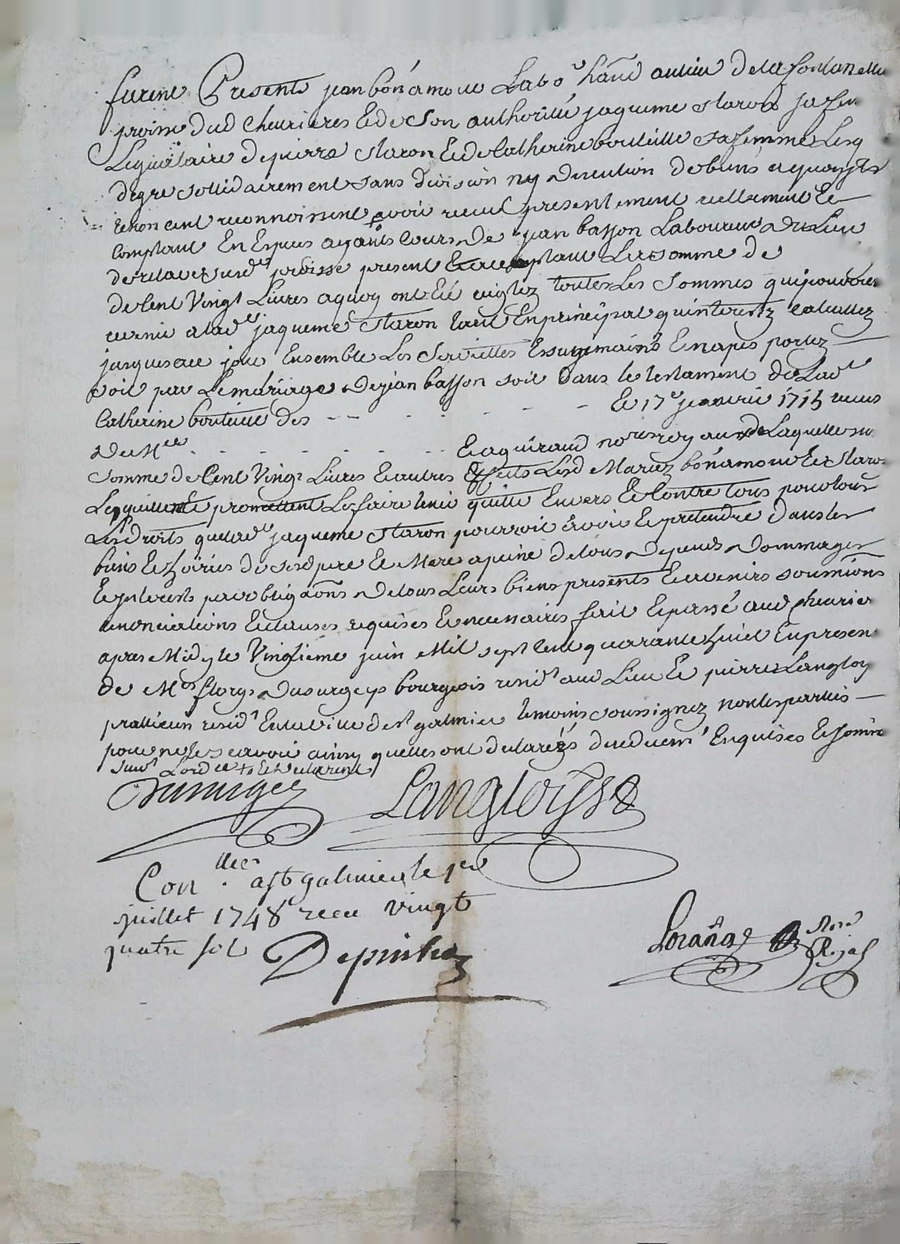 furent Presents jean bonamour Labor habt. au lieu de la fontanelle
proisse dud Cheurieres Et de Son authorité jaqueme staron sa fem
Legataire de pierre staron Et de Catherine bouteille sa femme Lesq
de gre sollidairement sans division ny discution de biens a quoy ils
renoncent reconnoissent avoir receu presentement reellement Et
Comptant En Especes ayants Cours de jean basson Laboureur du Lieu
proisse present Et acceptant La somme de
de Cent Vingt Livres a quoy ont Eté reiglez toutes Les Sommes qui pouvoient
revenir a lad. jaqueme Staron tant En principal qu'interestz Calculez
jusques a ce jour Ensemble Les Serviettes Essuyemains Et napes portez
soit par Le mariage de jean basson soit dans le testament de Lad.
Catherine bouteille des - - - - - - - Et 17e janvier 1715 receus
de Me - - - - - - Et aquiraud nore royaux de Laquelle
somme de Cent Vingt Livres Et autres Effects Lesd Mariez bonamour Et staron
Le quittent promettent Le faire tenir quitte Envers Et Contre tous pour tous
Les droits que lad. jaqueme staron pourroit avoir Et pretendre dans les
biens Et hoiries de sesd pere Et Mere a peine de tous depends dommages
Et interests par obligaons de tous Leurs biens presents Et avenirs soumions
renonciations Et clauses requises Et necessaires fait Et passé aud cheurier
apres Midy le Vingtieme juin Mil sept Cent quarante huict En presen
de Mr florys dusurgeys bourgeois residt aud Lieu Et pierre Langloys
pratticien residt En la ville de st galmier temoins soussignez non les parties
pour ne les scavoir ainsy quelles ont declarées duement Enquises Et somme
suivt Lord
Dusurgey Langloysse
Conlleé a st galmier le 1er
juillet 1748 receu vingt
quatre sol
Lorange Nore
Royal